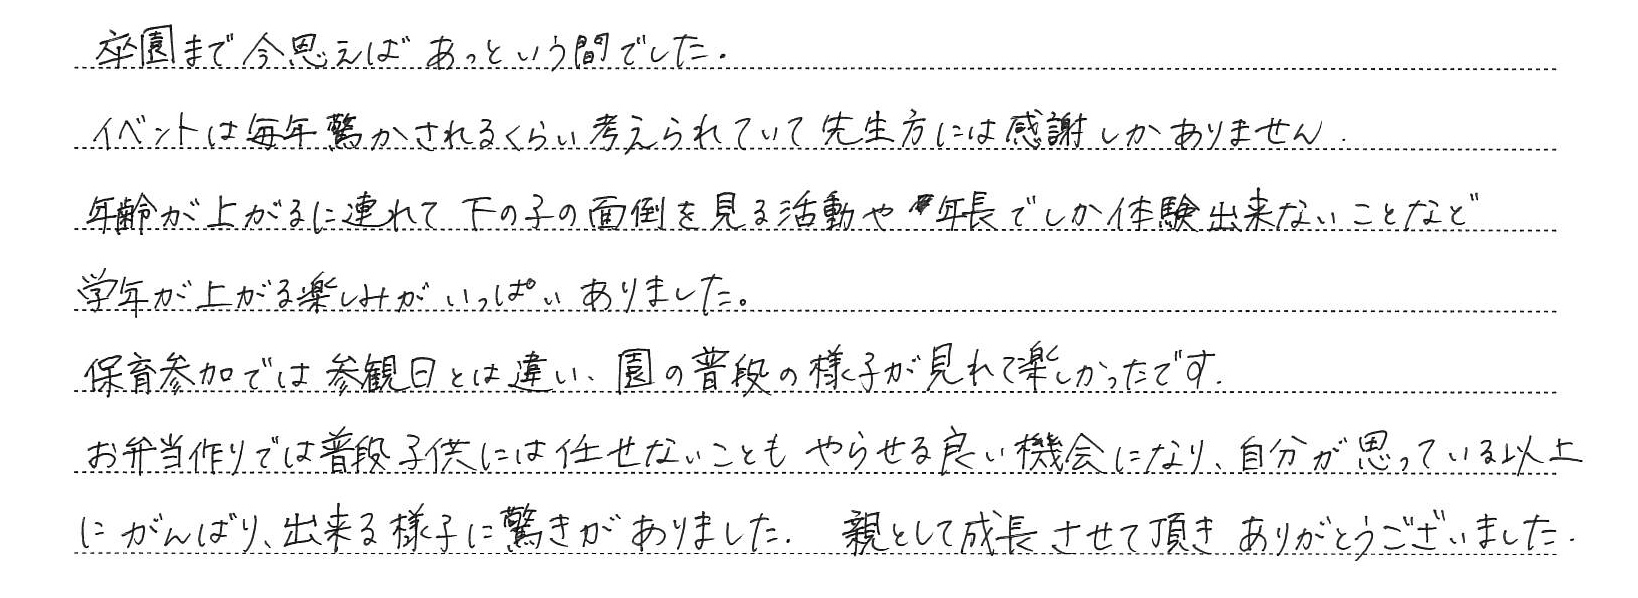 卒園まで今思えばあっという間でした.
イベントは毎年驚かされるくらい考えられていて先生方には感謝しかありません.
年齢が上がるに連れて下の子の面倒を見る活動や年長でしか体験出来ないことなど
学年が上がる楽しみがいっぱいありました。
保育参加では参観日とは違い、園の普段の様子が見れて楽しかったです.
お弁当作りでは普段子供には任せないこともやらせる良い機会になり、自分が思っている以上
にがんばり、出来る様子に驚きがありました. 親として成長させて頂きありがとうございました.